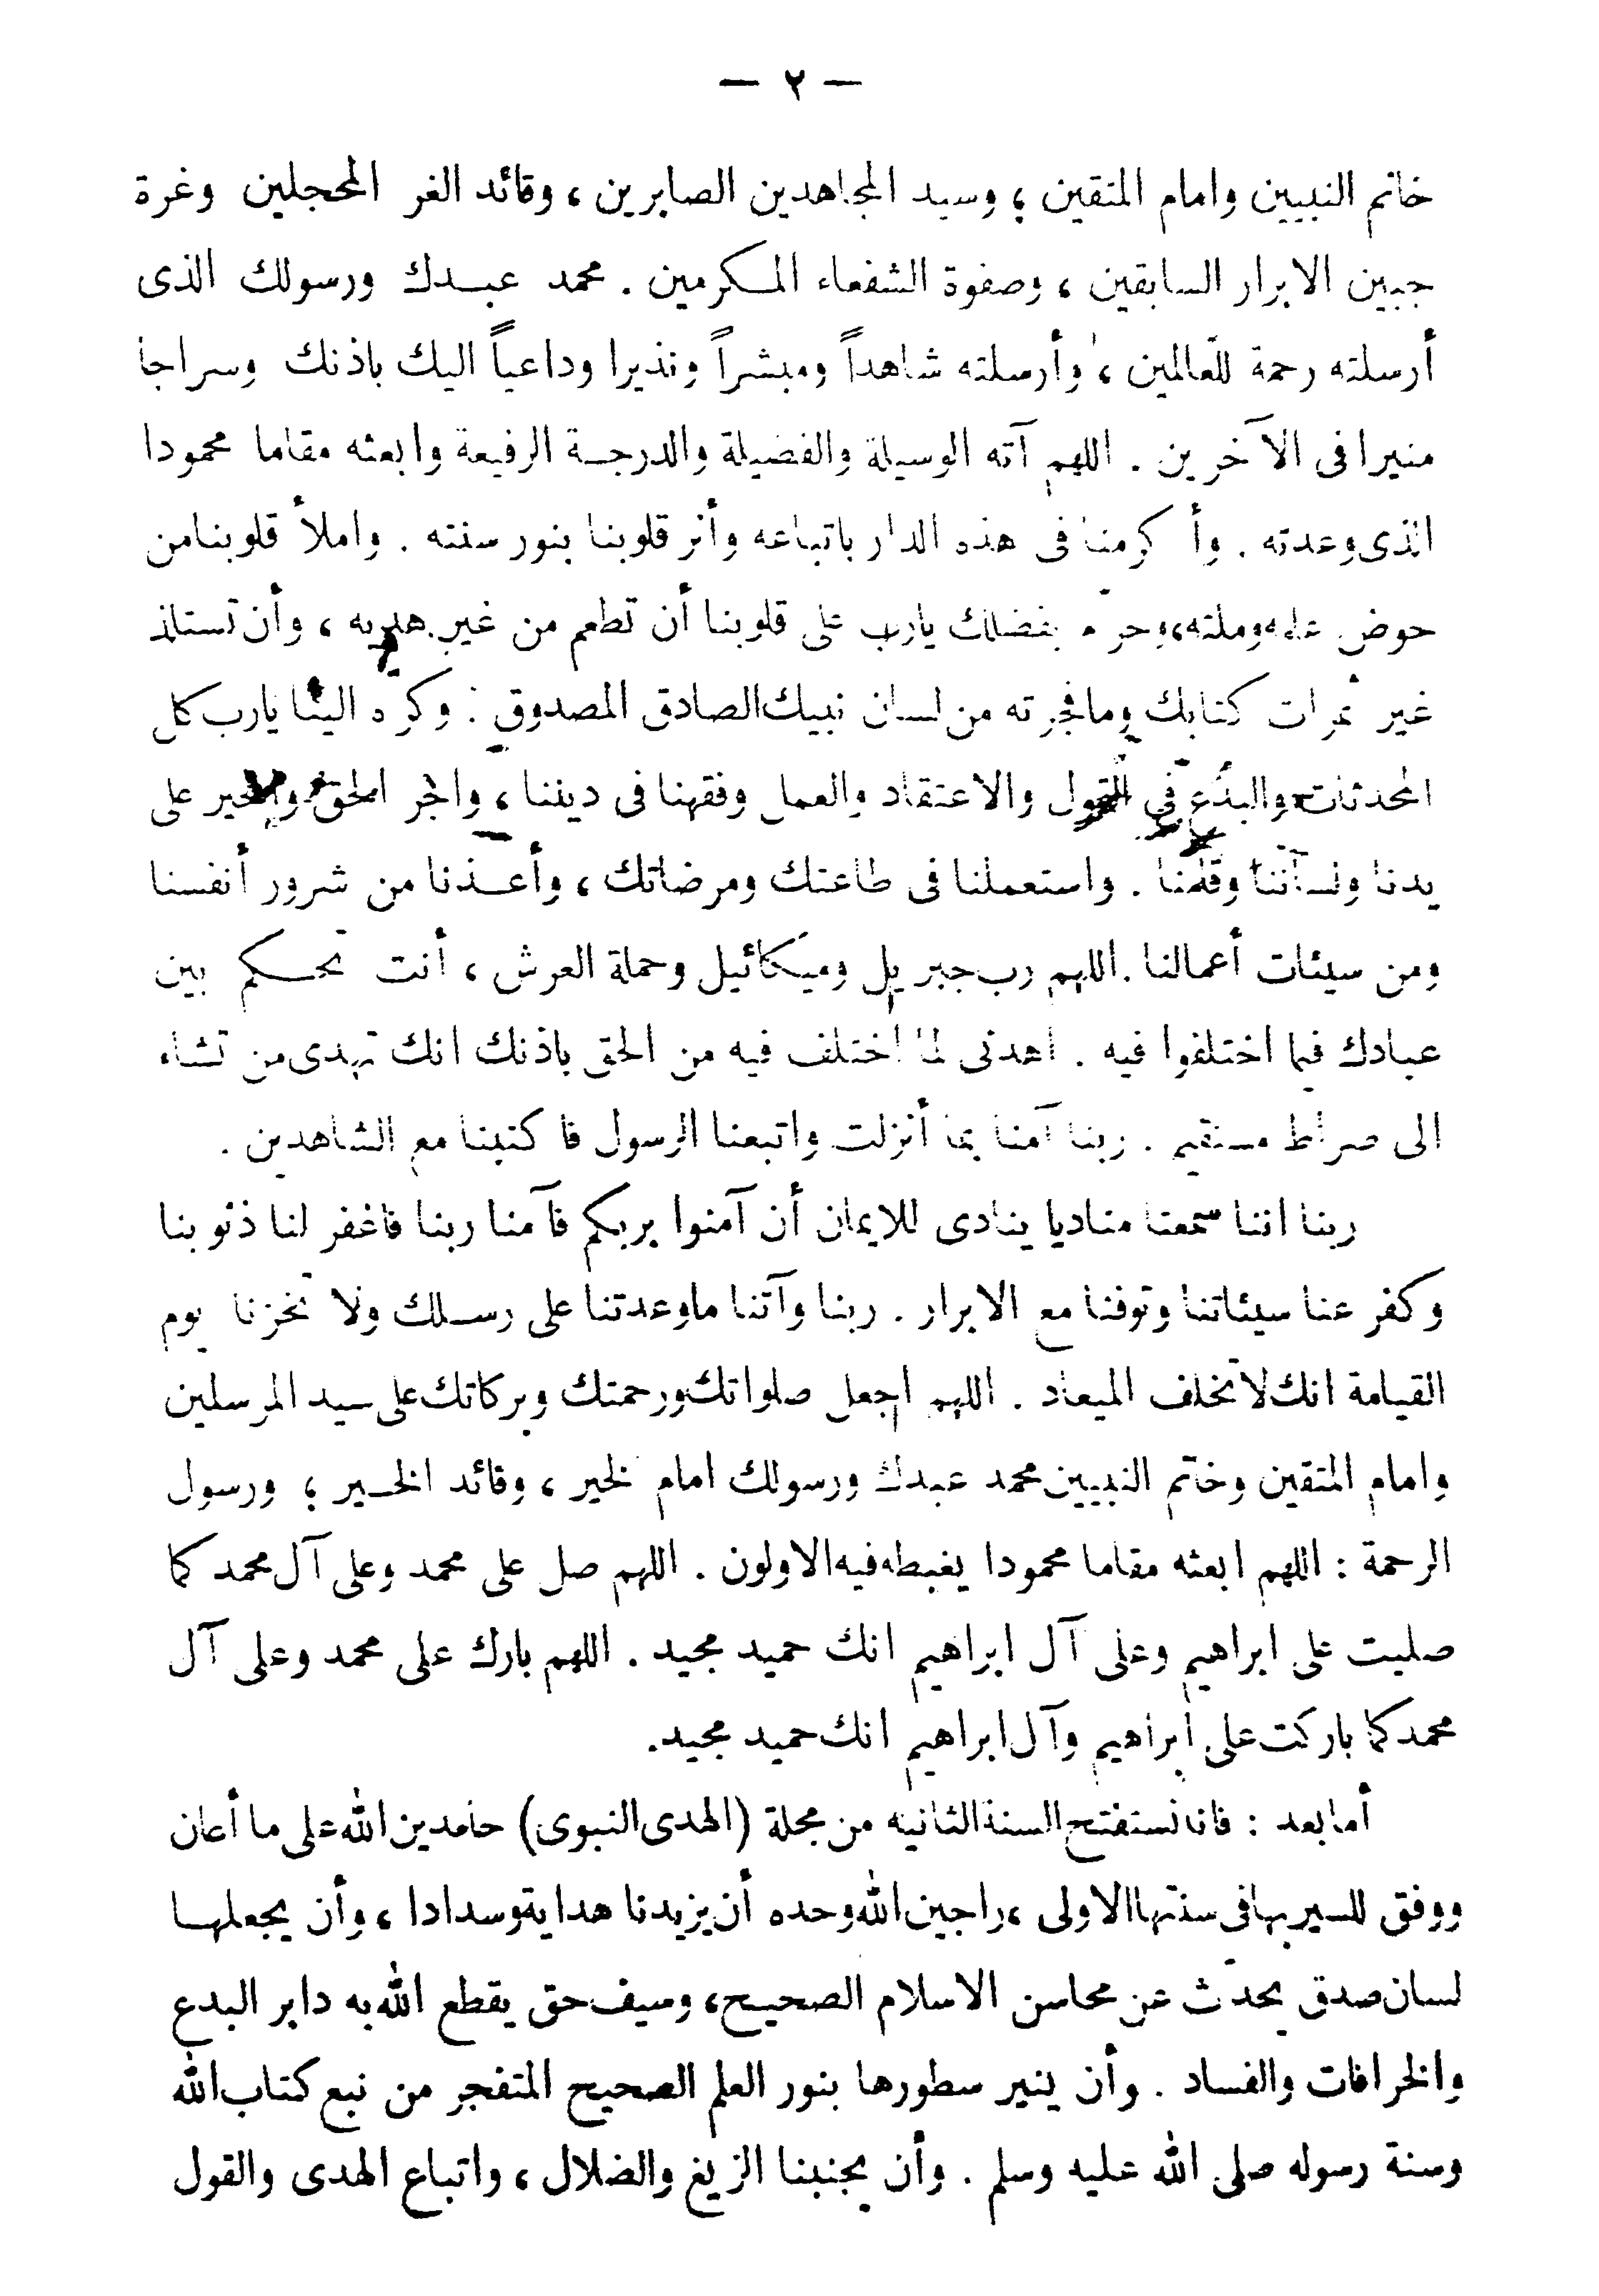 — ٢ —
خاتم النبيين وامام المتقين ؛ وسيد المجاهدين الصابرين ، وقائد الغر المحجلين وغرة
جبين الابرار السابقين ، وصفوة الشفعاء المكرمين . محمد عبدك ورسولك الذى
أرسلته رحمة للعالمين ، وأرسلته شاهداً ومبشراً ونذيرا وداعياً اليك باذنك وسراجا
منيرا فى الآخرين . اللهم آته الوسيلة والفضيلة والدرجة الرفيعة وابعثه مقاما محمودا
الذى وعدته . وأكرمنا فى هذه الدار باتباعه وأنر قلوبنا بنور سنته . واملأ قلوبنا من
حوض علمه وملته، وحرم بفضلك يارب على قلوبنا أن تطعم من غير هديه ، وأن تستلذ
غير ثمرات كتابك وما فجرته من لسان نبيك الصادق المصدوق . وكره الينا يارب كل
المحدثات والبدع فى القول والاعتقاد والعمل وفقهنا فى ديننا ، واجر الحق والخير على
يدنا ولساننا وقلمنا . واستعملنا فى طاعتك ومرضاتك ، وأعذنا من شرور أنفسنا
ومن سيئات أعمالنا . اللهم رب جبريل وميكائيل وحملة العرش ، أنت تحكم بين
عبادك فيما اختلفوا فيه . اهدنى لما اختلف فيه من الحق باذنك انك تهدى من تشاء
الى صراط مستقيم . ربنا آمنا بما أنزلت واتبعنا الرسول فاكتبنا مع الشاهدين .
ربنا اننا سمعنا مناديا ينادى للايمان أن آمنوا بربكم فآمنا ربنا فاغفر لنا ذنوبنا
وكفر عنا سيئاتنا وتوفنا مع الابرار . ربنا وآتنا ما وعدتنا على رسلك ولا تخزنا يوم
القيامة انك لا تخلف الميعاد . اللهم اجعل صلواتك ورحمتك وبركاتك على سيد المرسلين
وامام المتقين وخاتم النبيين محمد عبدك ورسولك امام الخير ، وقائد الخير ؛ ورسول
الرحمة : اللهم ابعثه مقاما محمودا يغبطه فيه الاولون . اللهم صل على محمد وعلى آل محمد كما
صليت على ابراهيم وعلى آل ابراهيم انك حميد مجيد . اللهم بارك على محمد وعلى آل
محمد كما باركت على ابراهيم وآل ابراهيم انك حميد مجيد.
أما بعد : فانا نستفتح السنة الثانيه من مجلة (الهدى النبوى) حامدين الله على ما أعان
ووفق للسير بها فى سنتها الاولى ، راجين الله وحده أن يزيدنا هداية وسدادا ، وأن يجعلها
لسان صدق يحدّث عن محاسن الاسلام الصحيح، وسيف حق يقطع الله به دابر البدع
والخرافات والفساد . وأن ينير سطورها بنور العلم الصحيح المتفجر من نبع كتاب الله
وسنة رسوله صلى الله عليه وسلم . وأن يجنبنا الزيغ والضلال ، واتباع الهدى والقول